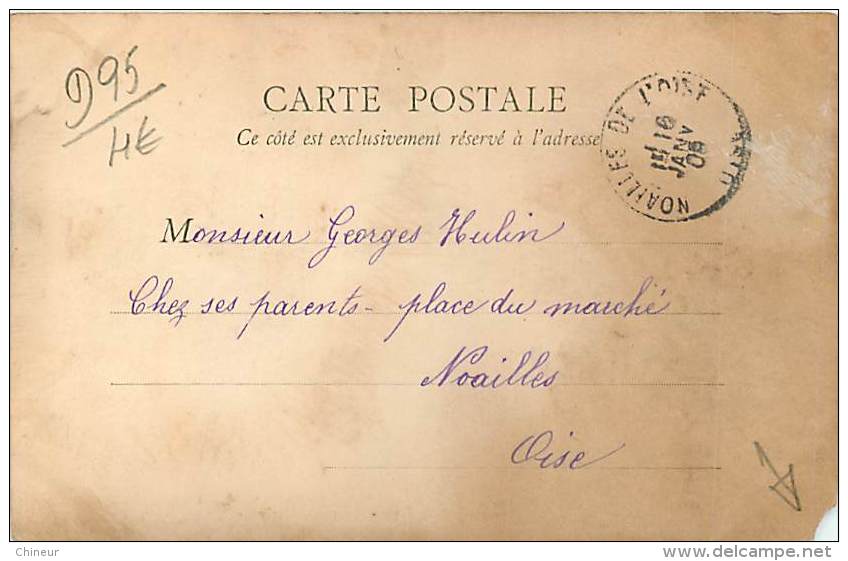 D95
4€
CARTE POSTALE
Ce côté est exclusivement réservé à l'adresse
NOAILLES DE L'OISE
16
JANV
05
Monsieur Georges Hulin
Chez ses parents - place du marché
Noailles
Oise
Chineur
delcampe.net